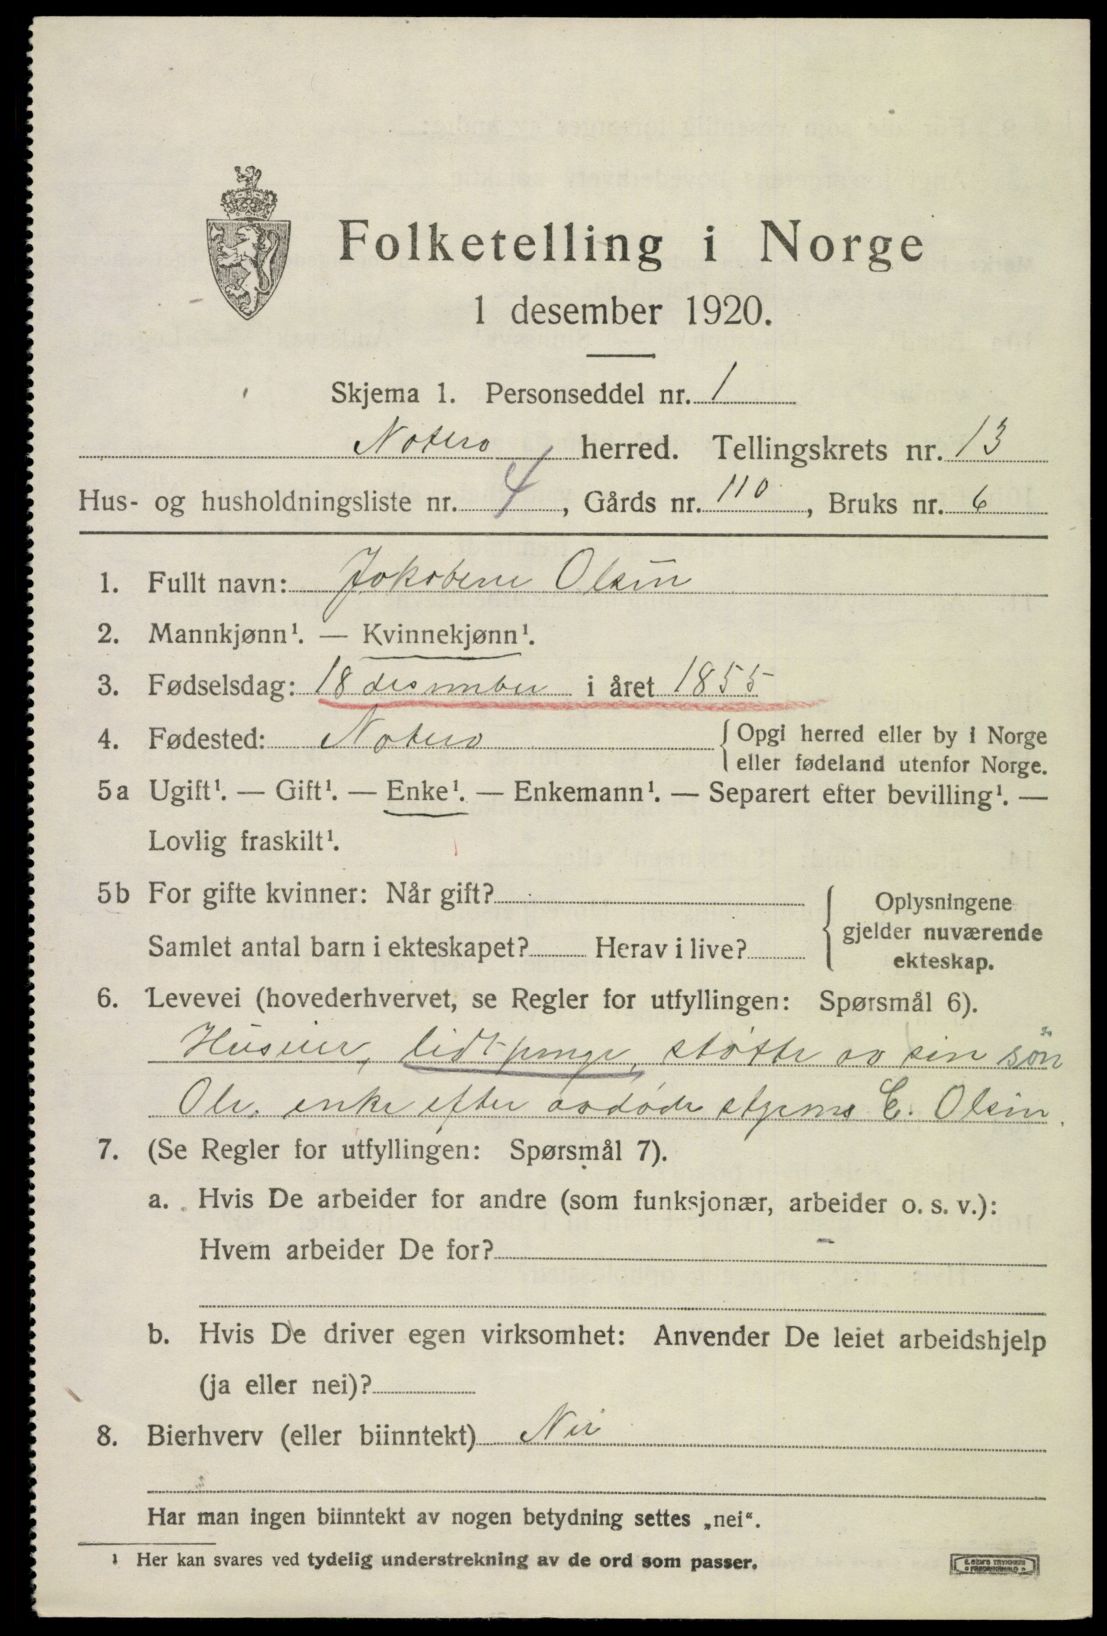 Folketelling i Norge
1 desember 1920.
Skjema 1. Personseddel nr. 1
Notero herred. Tellingskrets nr. 13
Hus- og husholdningsliste nr. 4, Gårds nr. 110, Bruks nr. 6
1. Fullt navn: Jokobene Olsen
2. Mannkjønn¹. — Kvinnekjønn¹.
3. Fødselsdag: 18 desember i året 1855
4. Fødested: Notero {Opgi herred eller by i Norge
eller fødeland utenfor Norge.
5a Ugift¹. — Gift¹. — Enke¹. — Enkemann¹. — Separert efter bevilling¹. —
Lovlig fraskilt¹.
5b For gifte kvinner: Når gift?
Samlet antal barn i ekteskapet? Herav i live?
{Oplysningene
gjelder nuværende
ekteskap.
6. Levevei (hovederhvervet, se Regler for utfyllingen: Spørsmål 6).
Huseier, lidt penge, støtte av sin søn
Ole. enke efter avdøde styrms E. Olsen.
7. (Se Regler for utfyllingen: Spørsmål 7).
a. Hvis De arbeider for andre (som funksjonær, arbeider o. s. v.):
Hvem arbeider De for? -
b. Hvis De driver egen virksomhet: Anvender De leiet arbeidshjelp
(ja eller nei)?
8. Bierhverv (eller biinntekt) Nei
Har man ingen biinntekt av nogen betydning settes „nei“.
¹ Her kan svares ved tydelig understrekning av de ord som passer.